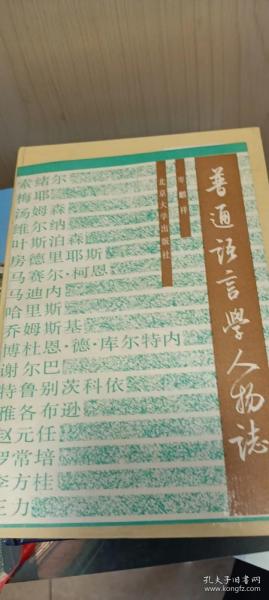 普通语言学人物志
岑麒祥
北京大学出版社
索绪尔
梅耶
汤姆森
维尔纳
叶斯泊森
房德里耶斯
马赛尔·柯恩
马迪内
哈里斯
乔姆斯基
博杜恩·德·库尔特内
谢尔巴
特鲁别茨科依
雅各布逊
赵元任
罗常培
李方桂
王力
孔夫子旧书网